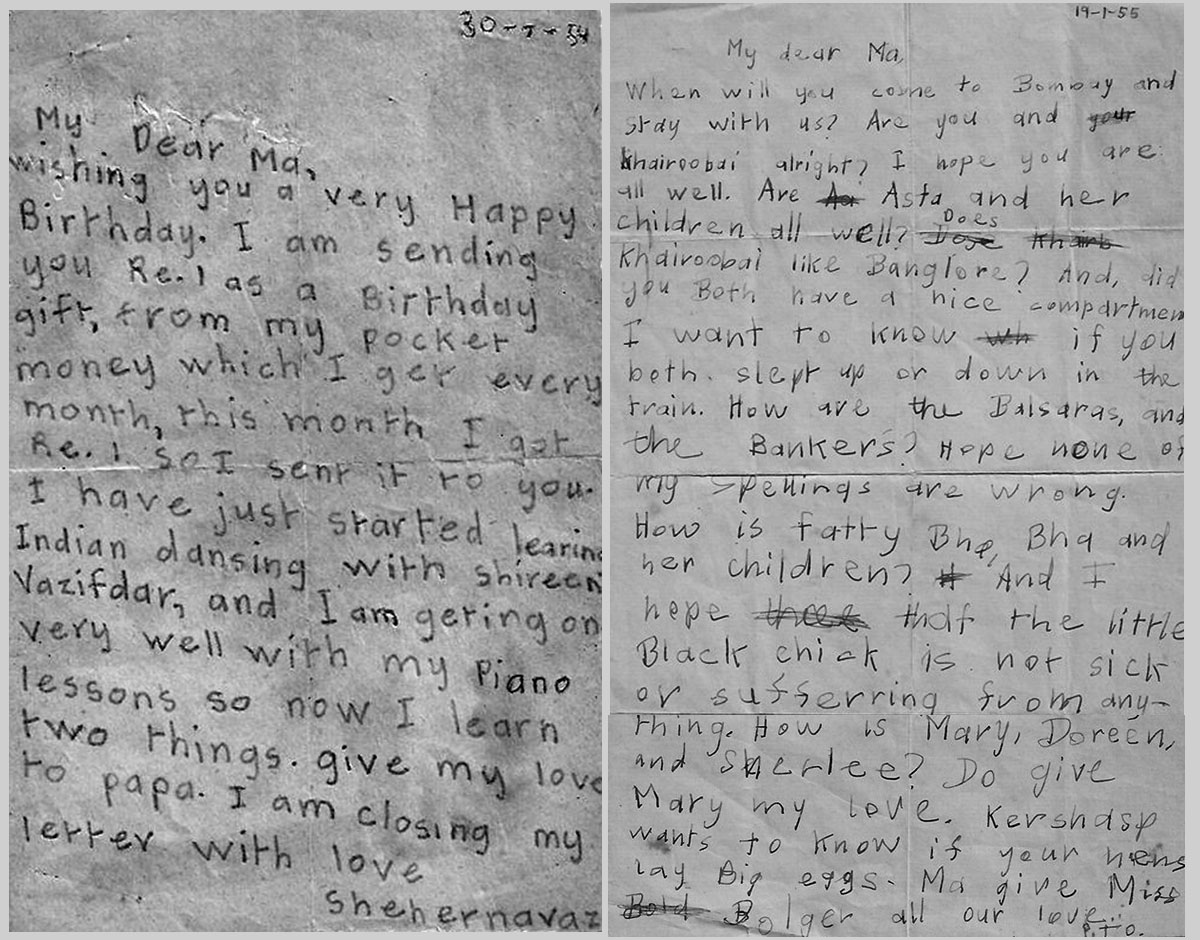 30-7-54
My Dear Ma,
wishing you a very Happy
Birthday. I am sending
you Re.1 as a Birthday
gift, from my pocket
money which I get every
month, this month I got
Re. 1. so I sent it to you.
I have just started learing
Indian dansing with shireen
Vazifdar, and I am geting on
very well with my Piano
lessons so now I learn
two things. give my love
to papa. I am closing my
letter with love
Shehernavaz
19-1-55
My dear Ma,
When will you come to Bombay and
stay with us? Are you and your
Khairoobai alright? I hope you are
all well. Are Aa Asta and her
children all well? Does
Khairoobai like Banglore? And, did
you Both have a nice compartmen
I want to know wh if you
both. slept up or down in the
train. How are the Balsaras, and
the Bankers? Hope none of
my spellings are wrong.
How is fatty Bha, Bha and
her children? And I
hope that the little
Black chick is not sick
or sufferring from any-
thing. How is Mary, Doreen,
and Sherlee? Do give
Mary my love. Kershasp
wants to know if your hens
lay Big eggs. Ma give Miss
Bold Bolger all our love.
P.T.O.